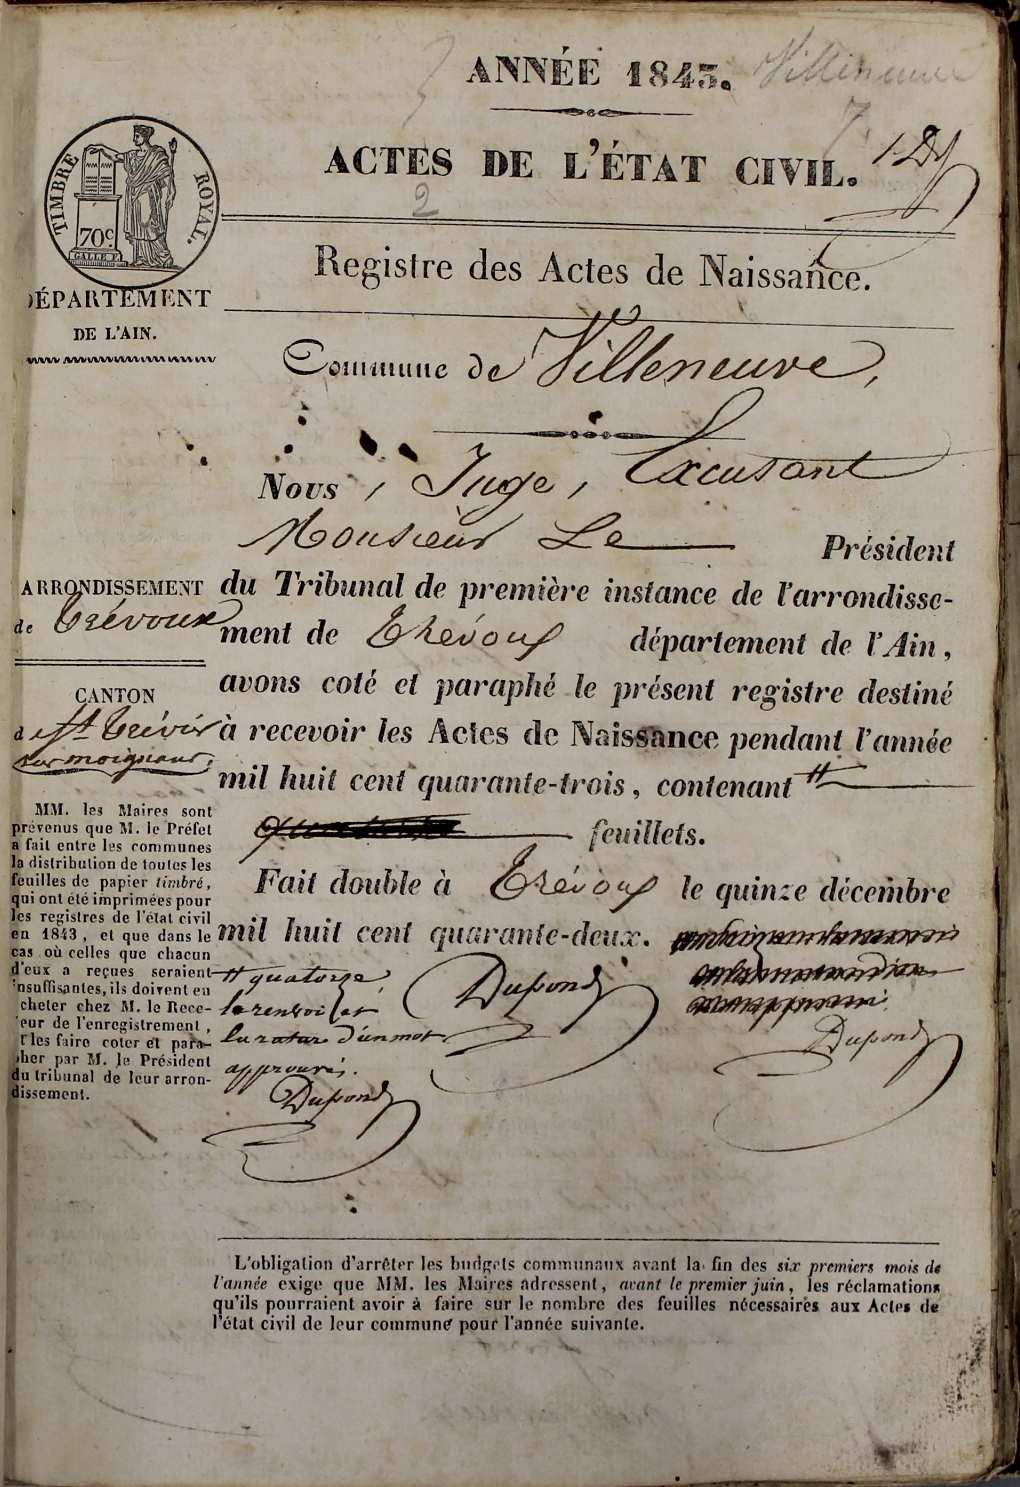 Villeneuve
ANNÉE 1843.
7.
1. Dd
ACTES DE L'ÉTAT CIVIL.
2
TIMBRE ROYAL.
70c
GALLE F.
Registre des Actes de Naissance.
DÉPARTEMENT
DE L'AIN.
Commune de Villeneuve,
Nous, Juge, Excusant
Monsieur Le Président
ARRONDISSEMENT
de Trévoux
du Tribunal de première instance de l'arrondisse-
ment de Trévoux département de l'Ain,
CANTON
de St Trivier
sur moignans,
avons coté et paraphé le présent registre destiné
à recevoir les Actes de Naissance pendant l'année
mil huit cent quarante-trois, contenant #
feuillets.
Fait double à Trévoux le quinze décembre
mil huit cent quarante-deux.
MM. les Maires sont
prévenus que M. le Préfet
a fait entre les communes
la distribution de toutes les
feuilles de papier timbré,
qui ont été imprimées pour
les registres de l'état civil
en 1843, et que dans le
cas où celles que chacun
d'eux a reçues seraient
insuffisantes, ils doivent en
cheter chez M. le Rece-
eur de l'enregistrement,
t les faire coter et para-
pher par M. le Président
du tribunal de leur arron-
dissement.
# quatorze,
le renvoi et
la rature d'un mot
approuvés.
Dupond
Dupond
Dupond
L'obligation d'arrêter les budgets communaux avant la fin des six premiers mois de
l'année exige que MM. les Maires adressent, avant le premier juin, les réclamations
qu'ils pourraient avoir à faire sur le nombre des feuilles nécessaires aux Actes de
l'état civil de leur commune pour l'année suivante.